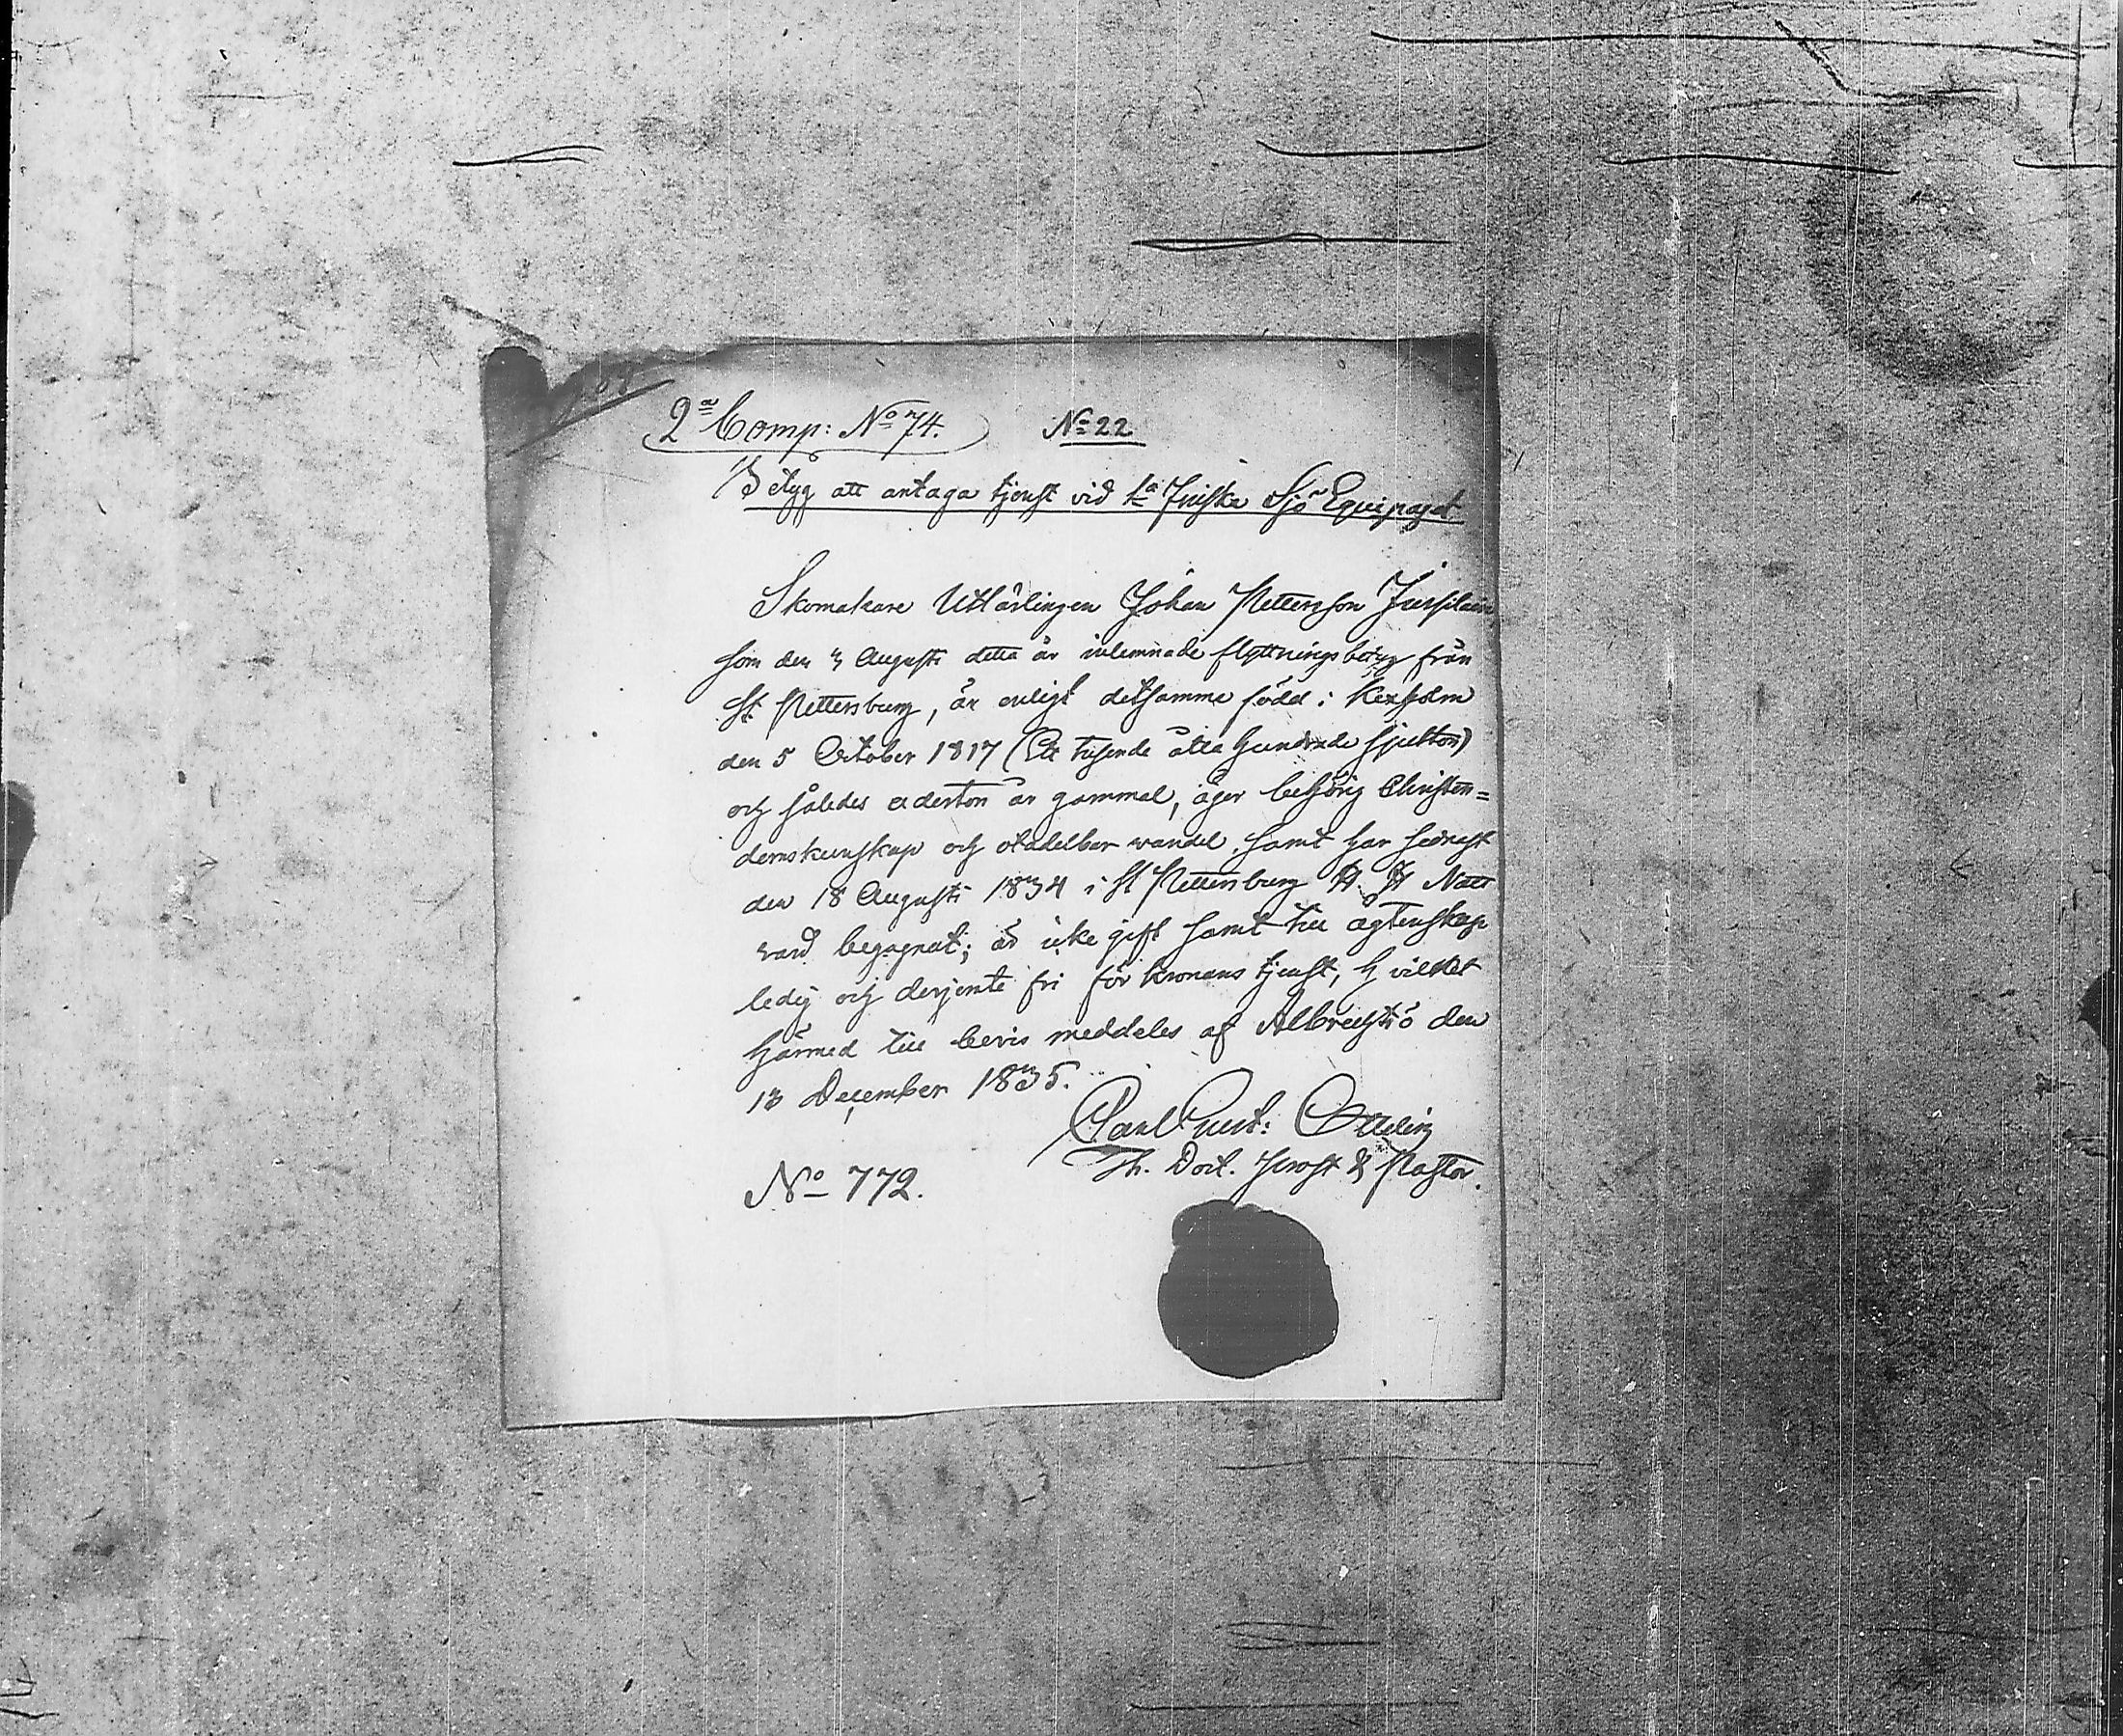 2a Comp: No 74. No 22
Betyg att antaga tjenst vid 1a Finska Sjö Equipaget
Skomakare Utlärlingen Johan Pettersson
som den 3 Augusti detta år inlemnade flyttningsbetyg från
St. Pettersburg, är enligt detsamma född i Kexholm
den 5 October 1817 (Ett tusende åtta hundrade sjutton)
och således aderton år gammal, äger behörig Christen=
domskunskap och otadelbar wandel, samt har sednast
den 18 Augusti 1834 i St Pettersburg H. H Natt
vard begagnat; är icke gift samt till ägtenskap
ledig och derjemte fri för kronans tjenst, hvilket
härmed till bevis meddeles af Albrechtsö den
13 December 1835.
Carl Gust: Ottelin
Th. Doct. Prost & Pastor.
No 772.